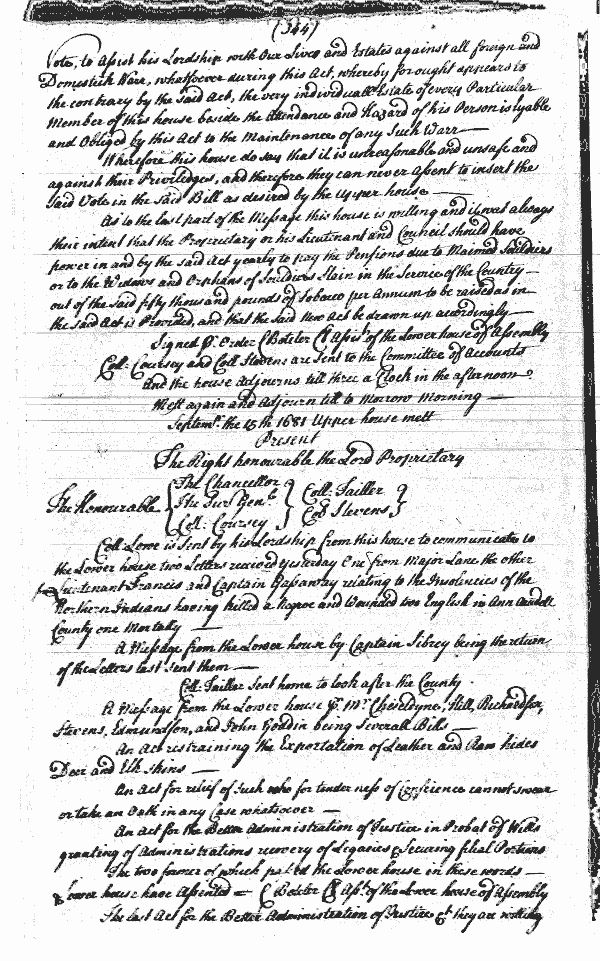 (344)
Vote, to Assist his Lordship with Our Lives and Estates against all foreign and
Domestick Warr, whatsoever during this Act, whereby for ought appears to
the contrary by the said Act, the very individuall Estate of every Particular
Member of this house beside the Attendance and Hazard of his Person is lyable
and Obliged by this Act to the Maintenance of any Such Warr —
Wherefore this house do say that it is unreasonable and unsafe and
against their Priviledges, and therefore they can never Assent to insert the
Said Vote in the Said Bill as desired by the Upper house —
As to the last part of the Message this house is willing and it was always
their intent that the Proprietary or his Lieutenant and Council Should have
power in and by the said Act yearly to pay the Pensions due to Maimed Souldiers
or to the Widows and Orphans of Souldiers Slain in the Service of the Country —
out of the Said fifty thousand pounds of Tobacco per Annum to be raised as in
the said Act is Provided, and that the Said New Act be drawn up accordingly —
Signed P. Order C Boteler Cl Assis. of the Lower house of Assembly
Coll: Coursey and Coll Stevens are Sent to the Committee of Accounts
And the house Adjourns till three a Clock in the afternoon
Mett again and Adjourn till to Morrow Morning —
Septem. the 15th 1681 Upper house mett
Present
The Right honourable the Lord Proprietary
The Honourable { The Chancellor The Sur Gen.l Coll: Coursey } Coll: Tailler Coll Stevens }
Coll: Lowe is Sent by his Lordship from this house to communicate to
the Lower house two Letters received yesterday One from Major Lane the other
Lieutenant Francis and Captain Gassaway relating to the Insolencies of the
Northern Indians having killed a Negroe and Wounded two English in Ann Arundell
County one Mortally —
A Message from the Lower house by Captain Sibrey being the return
of the Letters last Sent them —
Coll: Tailler Sent home to look after the County
A Message from the Lower house P. Mr Cheseldyne, Hill, Richardson,
Stevens, Edmundson, and John Goddin being Severall Bills —
An Act restraining the Exportation of Leather and Raw hides
Deer and Elk skins —
An Act for relief of Such who for tenderness of Conscience cannot swear
or take an Oath in any Case whatsoever —
An Act for the Better Administration of Justice in Probat of Wills
granting of Administrations recovery of Legacies & Securing filial Portions
The two former of which passed the Lower house in these words —
Lower house have Assented — C Boteler Cl Asst. of the Lower house of Assembly
The last Act for the Better Administration of Justice &t they are willing